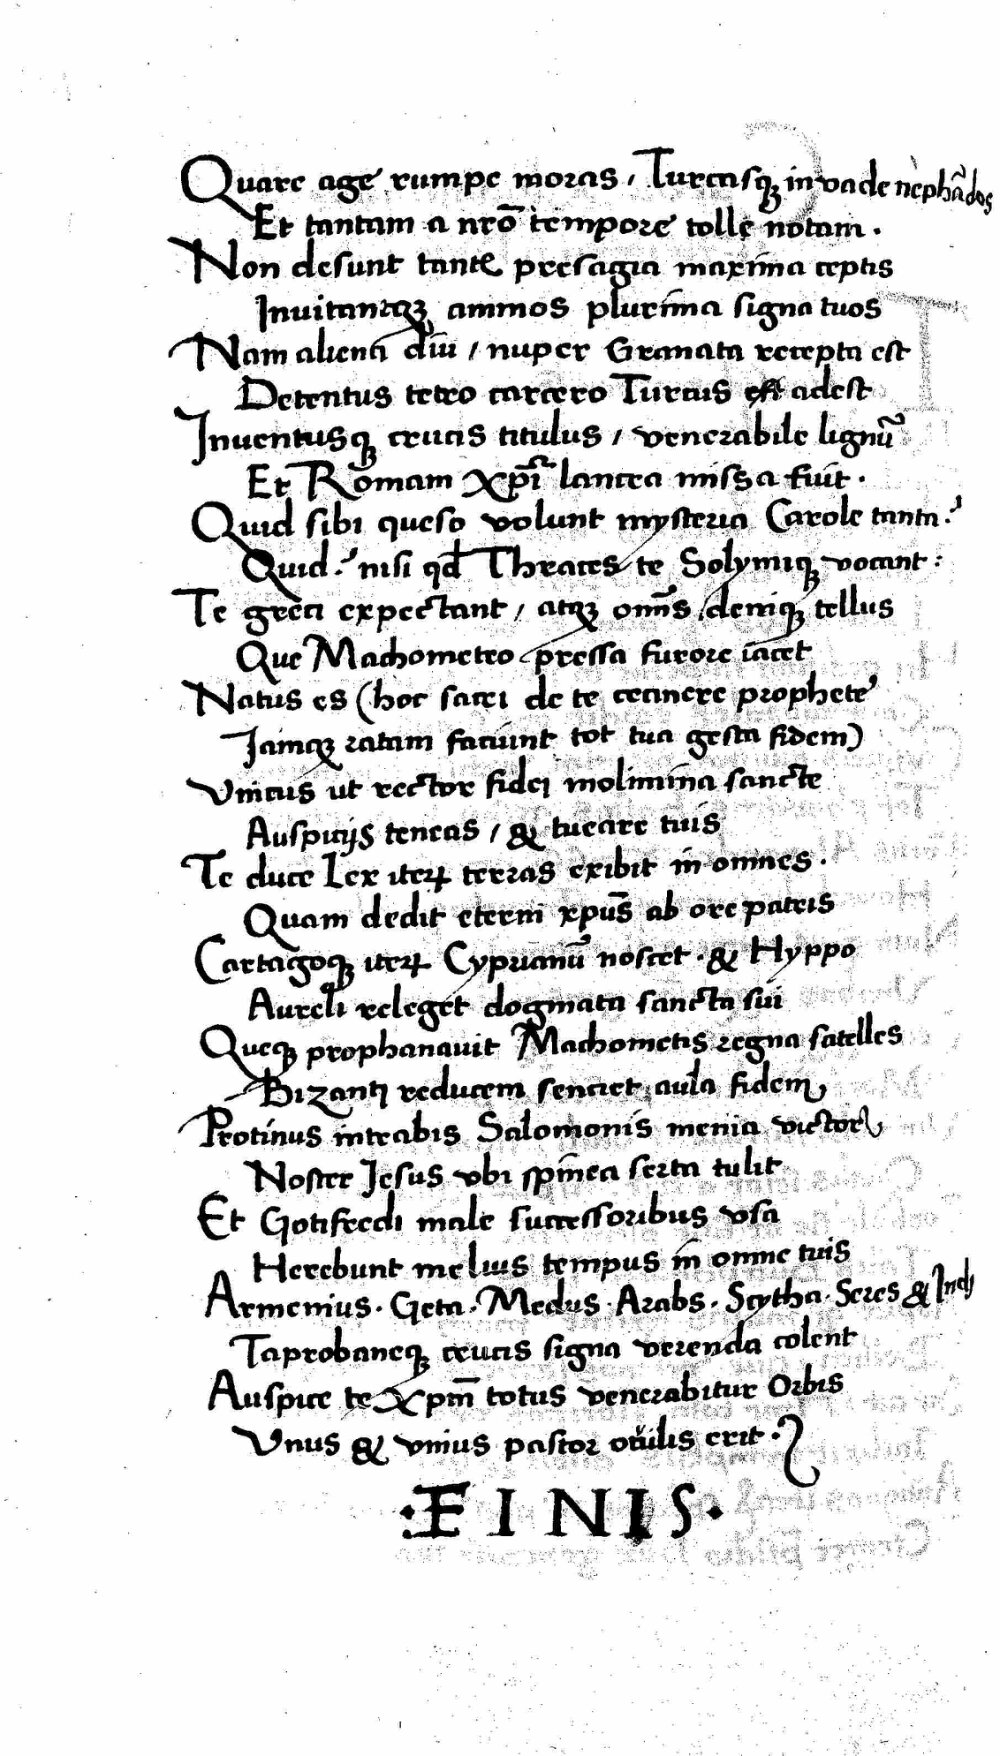 Quare age rumpe moras, Turcasqꝫ invade nephādos
Et tantam a nr̄o tempore tolle notam.
Non desunt tantę presagia maxima ceptis
Invitantqꝫ animos plurima signa tuos
Nam aliena diu, nuper Granata recepta est
Detentus tetro carcero Turcus adest
Inventusqꝫ crucis titulus, venerabile lignū
Et Romam Xp̄i lancea missa fuit.
Quid sibi queso volunt mysteria Carole tanta?
Quid? nisi qd Thraces te Solymiqꝫ vocant:
Te greci expectant, atqꝫ om̄s deniqꝫ tellus
Que Machometeo pressa furore iacet
Natus es (hoc sacri de te cecinere prophete
Iamqꝫ ratam faciunt tot tua gesta fidem)
Vnicus ut rector fidei molimina sancte
Auspicijs teneas, & tueare tuis
Te duce Lex iteꝝ terras exibit in omnes.
Quam dedit eterni xp̄us ab ore patris
Cartagoqꝫ iteꝝ Cyprianū noscet. & Hyppo
Aureli releget dogmata sancta sui
Queqꝫ prophanavit Machometis regna satelles
Bizanti reducem senciet aula fidem
Protinus intrabis Salomonis menia victor
Noster Jesus vbi spinea serta tulit
Et Gotifredi male successoribus vsa
Herebunt melius tempus in omne tuis
Armenius. Geta. Medus. Arabs. Scytha. Seres & Indi
Taprobaneqꝫ crucis signa verenda colent
Auspice te Xp̄m totus venerabitur Orbis
Vnus & vnius pastor ovilis erit.
.FINIS.